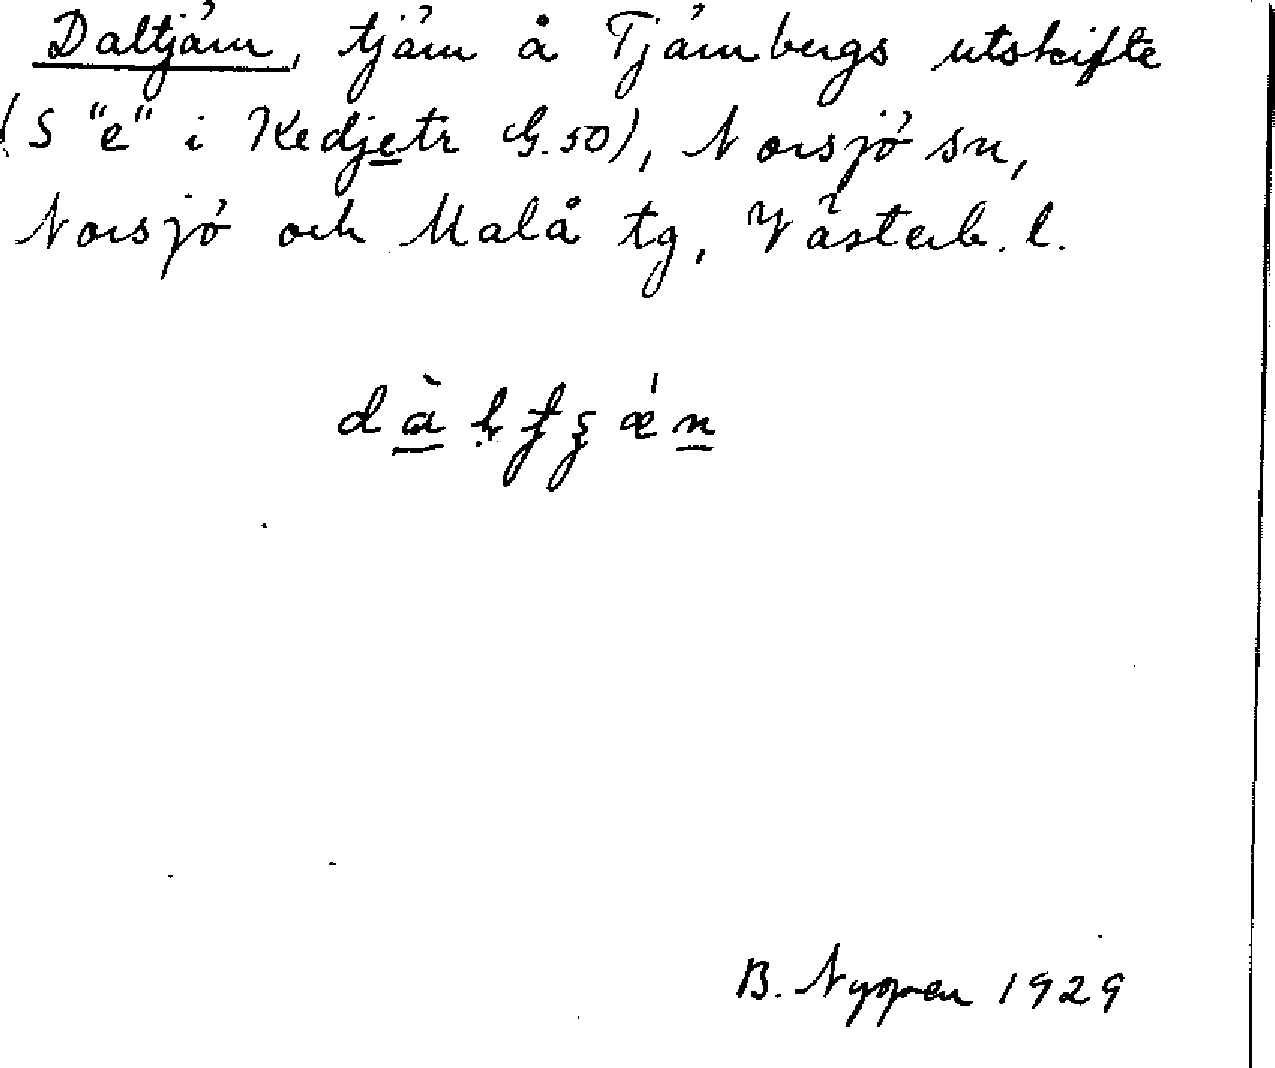 Daltjärn, tjärn å Tjärnbergs utskifte
(S "e" i Kedjetr G. 50), Norsjö sn,
Norsjö och Malå tg, Västerb. l.
B. Nygren 1929